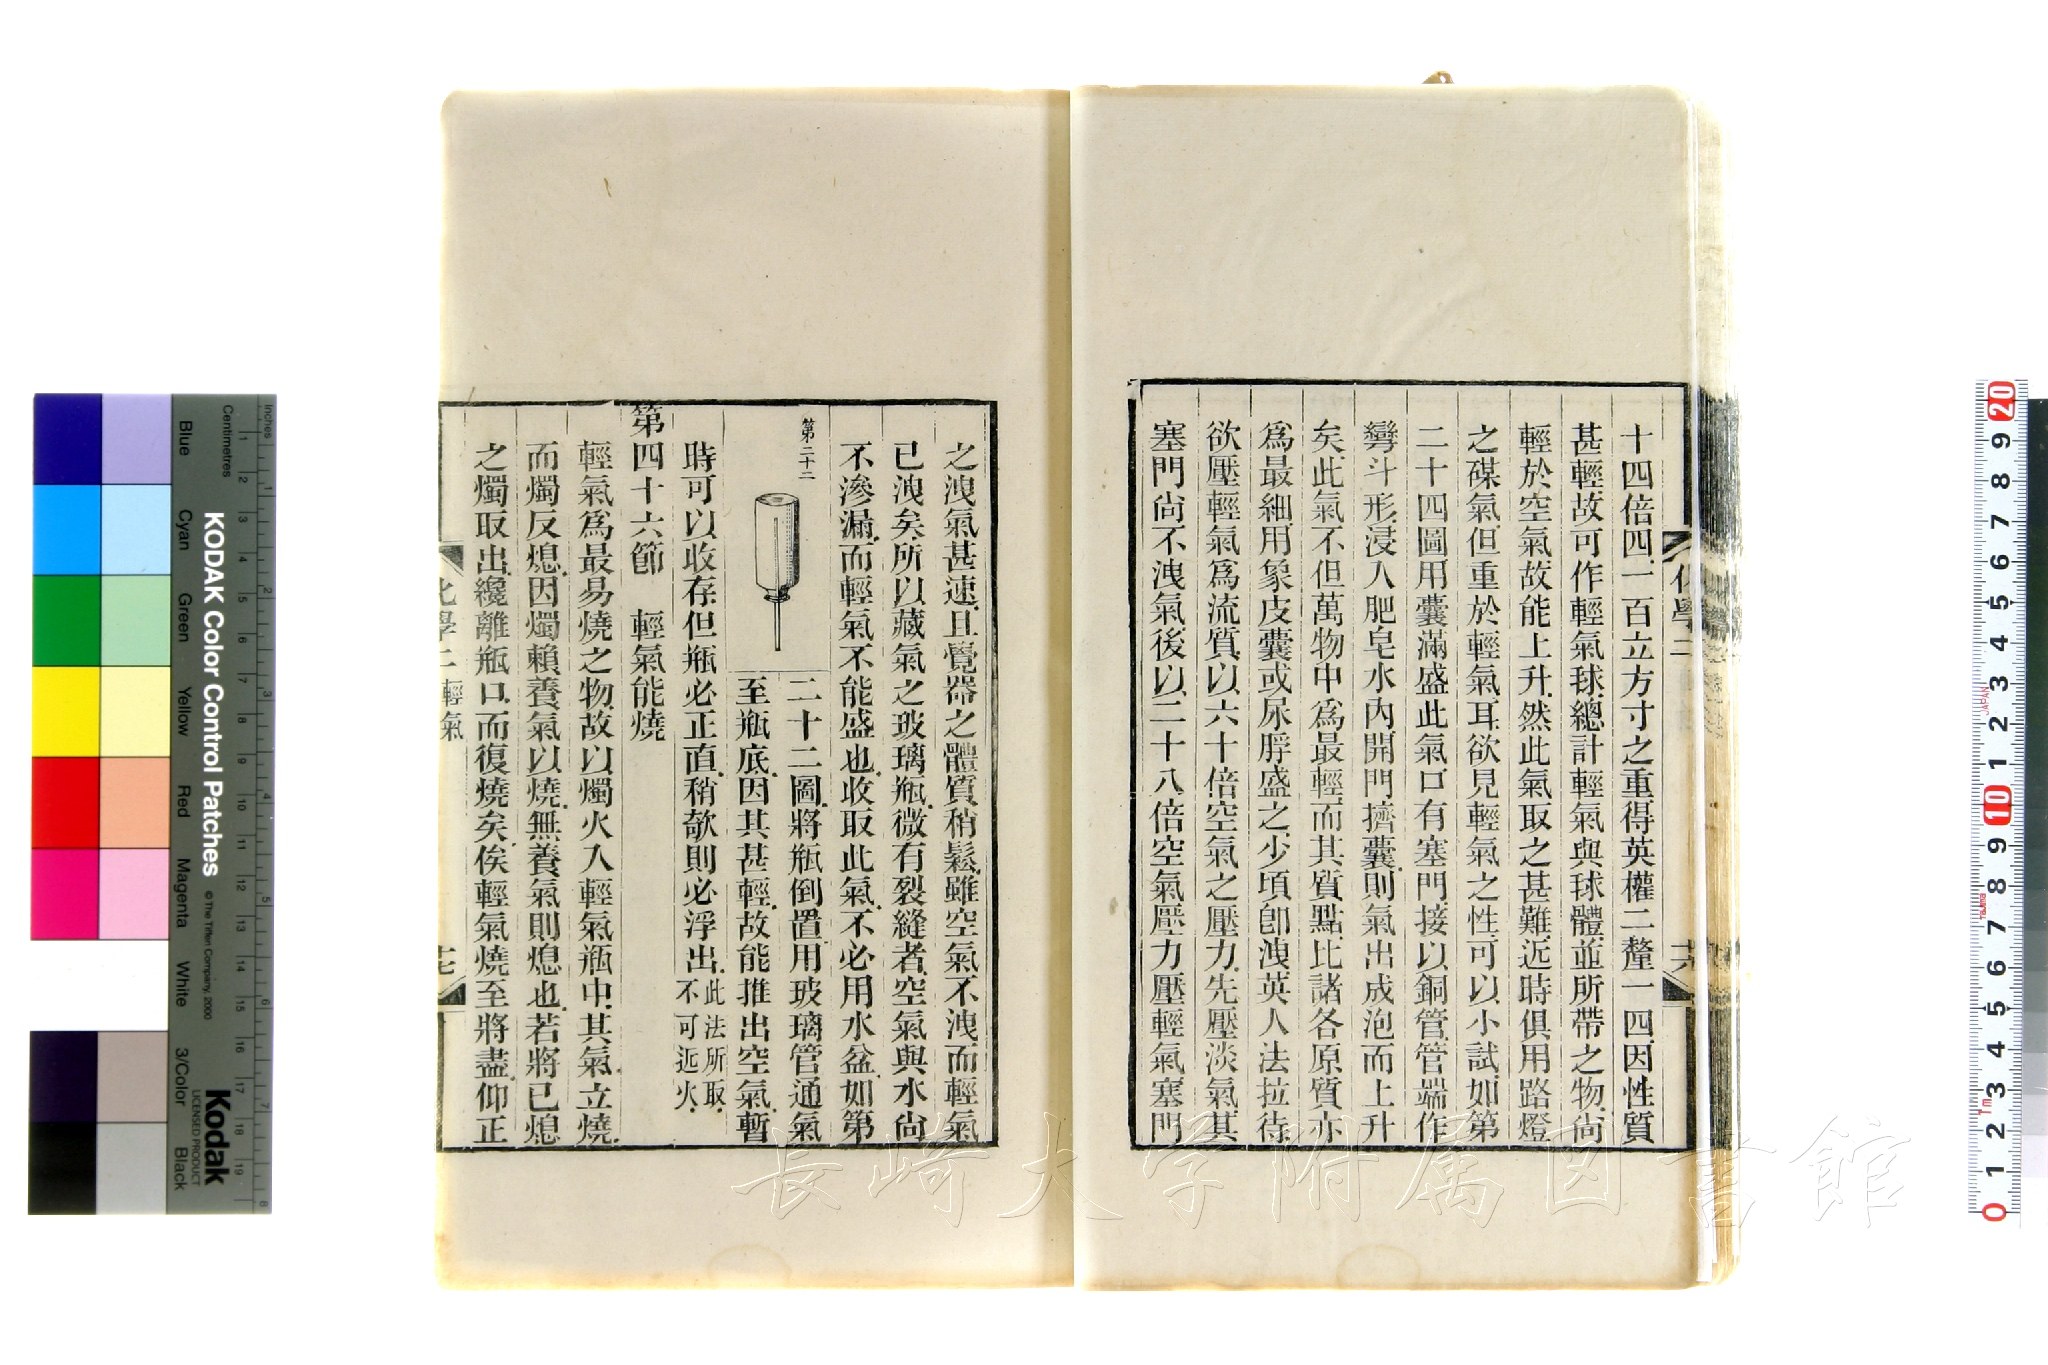 十四倍四一百立方寸之重得英權二釐一四因性質
甚輕故可作輕氣球總計輕氣與球體並所帶之物尚
輕於空氣故能上升然此氣取之甚難近時俱用路燈
之碟氣但重於輕氣耳欲見輕氣之性可以小試如第
二十四圖用囊滿盛此氣口有塞門接以銅管管端作
彎斗形浸入肥皂水內開門擠囊則氣出成泡而上升
矣此氣不但萬物中爲最輕而其質點比諸各原質亦
爲最細用象皮囊或尿脬盛之少頃卽洩英人法拉待
欲壓輕氣爲流質以六十倍空氣之壓力先壓淡氣其
塞門尚不洩氣後以二十八倍空氣壓力壓輕氣塞門
之洩氣甚速且覺器之體質稍鬆雖空氣不洩而輕氣
已洩矣所以藏氣之玻璃瓶微有裂縫者空氣與水尚
不滲漏而輕氣不能盛也收取此氣不必用水盆如第
第二十二
二十二圖將瓶倒置用玻璃管通氣
至瓶底因其甚輕故能推出空氣暫
時可以收存但瓶必正直稍欹則必浮出此法所取
不可近火
第四十六節　輕氣能燒
輕氣爲最易燒之物故以燭火入輕氣瓶中其氣立燒
而燭反熄因燭賴養氣以燒無養氣則熄也若將已熄
之燭取出纔離瓶口而復燒矣俟輕氣燒至將盡仰正
化學二 輕氣
KODAK Color Control Patches
© The Tiffen Company, 2000
Kodak
LICENSED PRODUCT
Inches
Centimetres
Blue
Cyan
Green
Yellow
Red
Magenta
White
3/Color
Black
長崎大学附属図書館
JAPAN